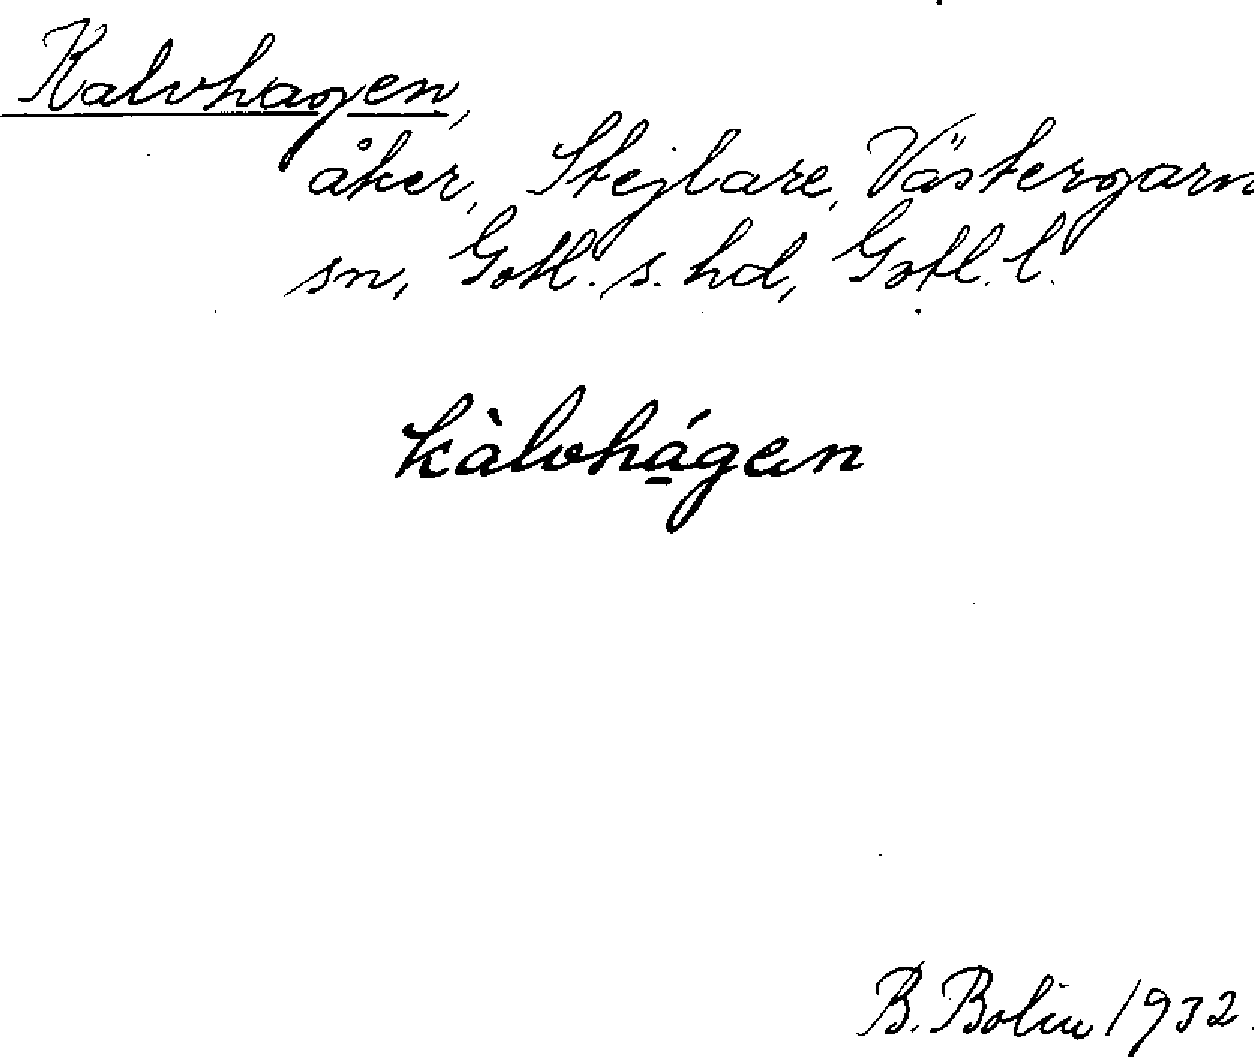 Kalvhagen,
åker, Stejlare, Västergarn
sn, Gotl. s. hd, Gotl. l.
kàlvhá̱gen
B. Bolin 1932.